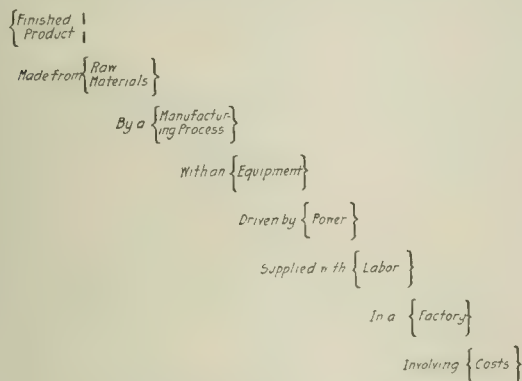 {Finished
Product }
Made from {Raw
Materials}
By a {Manufactur-
ing Process}
With an {Equipment}
Driven by {Power}
Supplied with {Labor}
In a {Factory}
Involving {Costs}